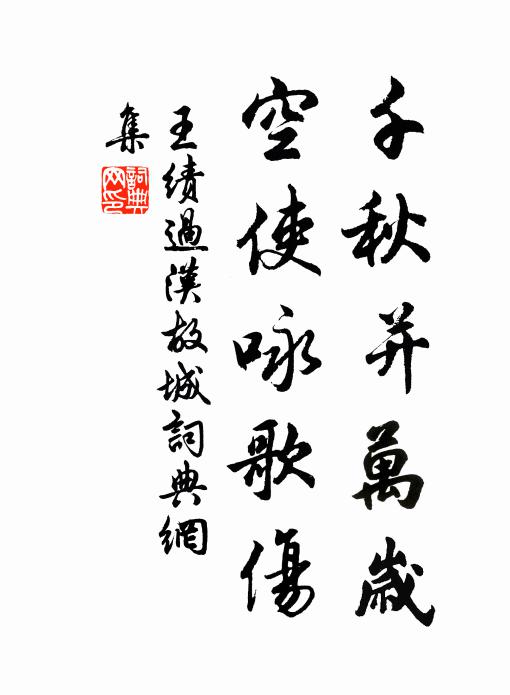 千秋并萬歲
空使咏歌傷
王績過漢故城詞典網
集
詞典网印